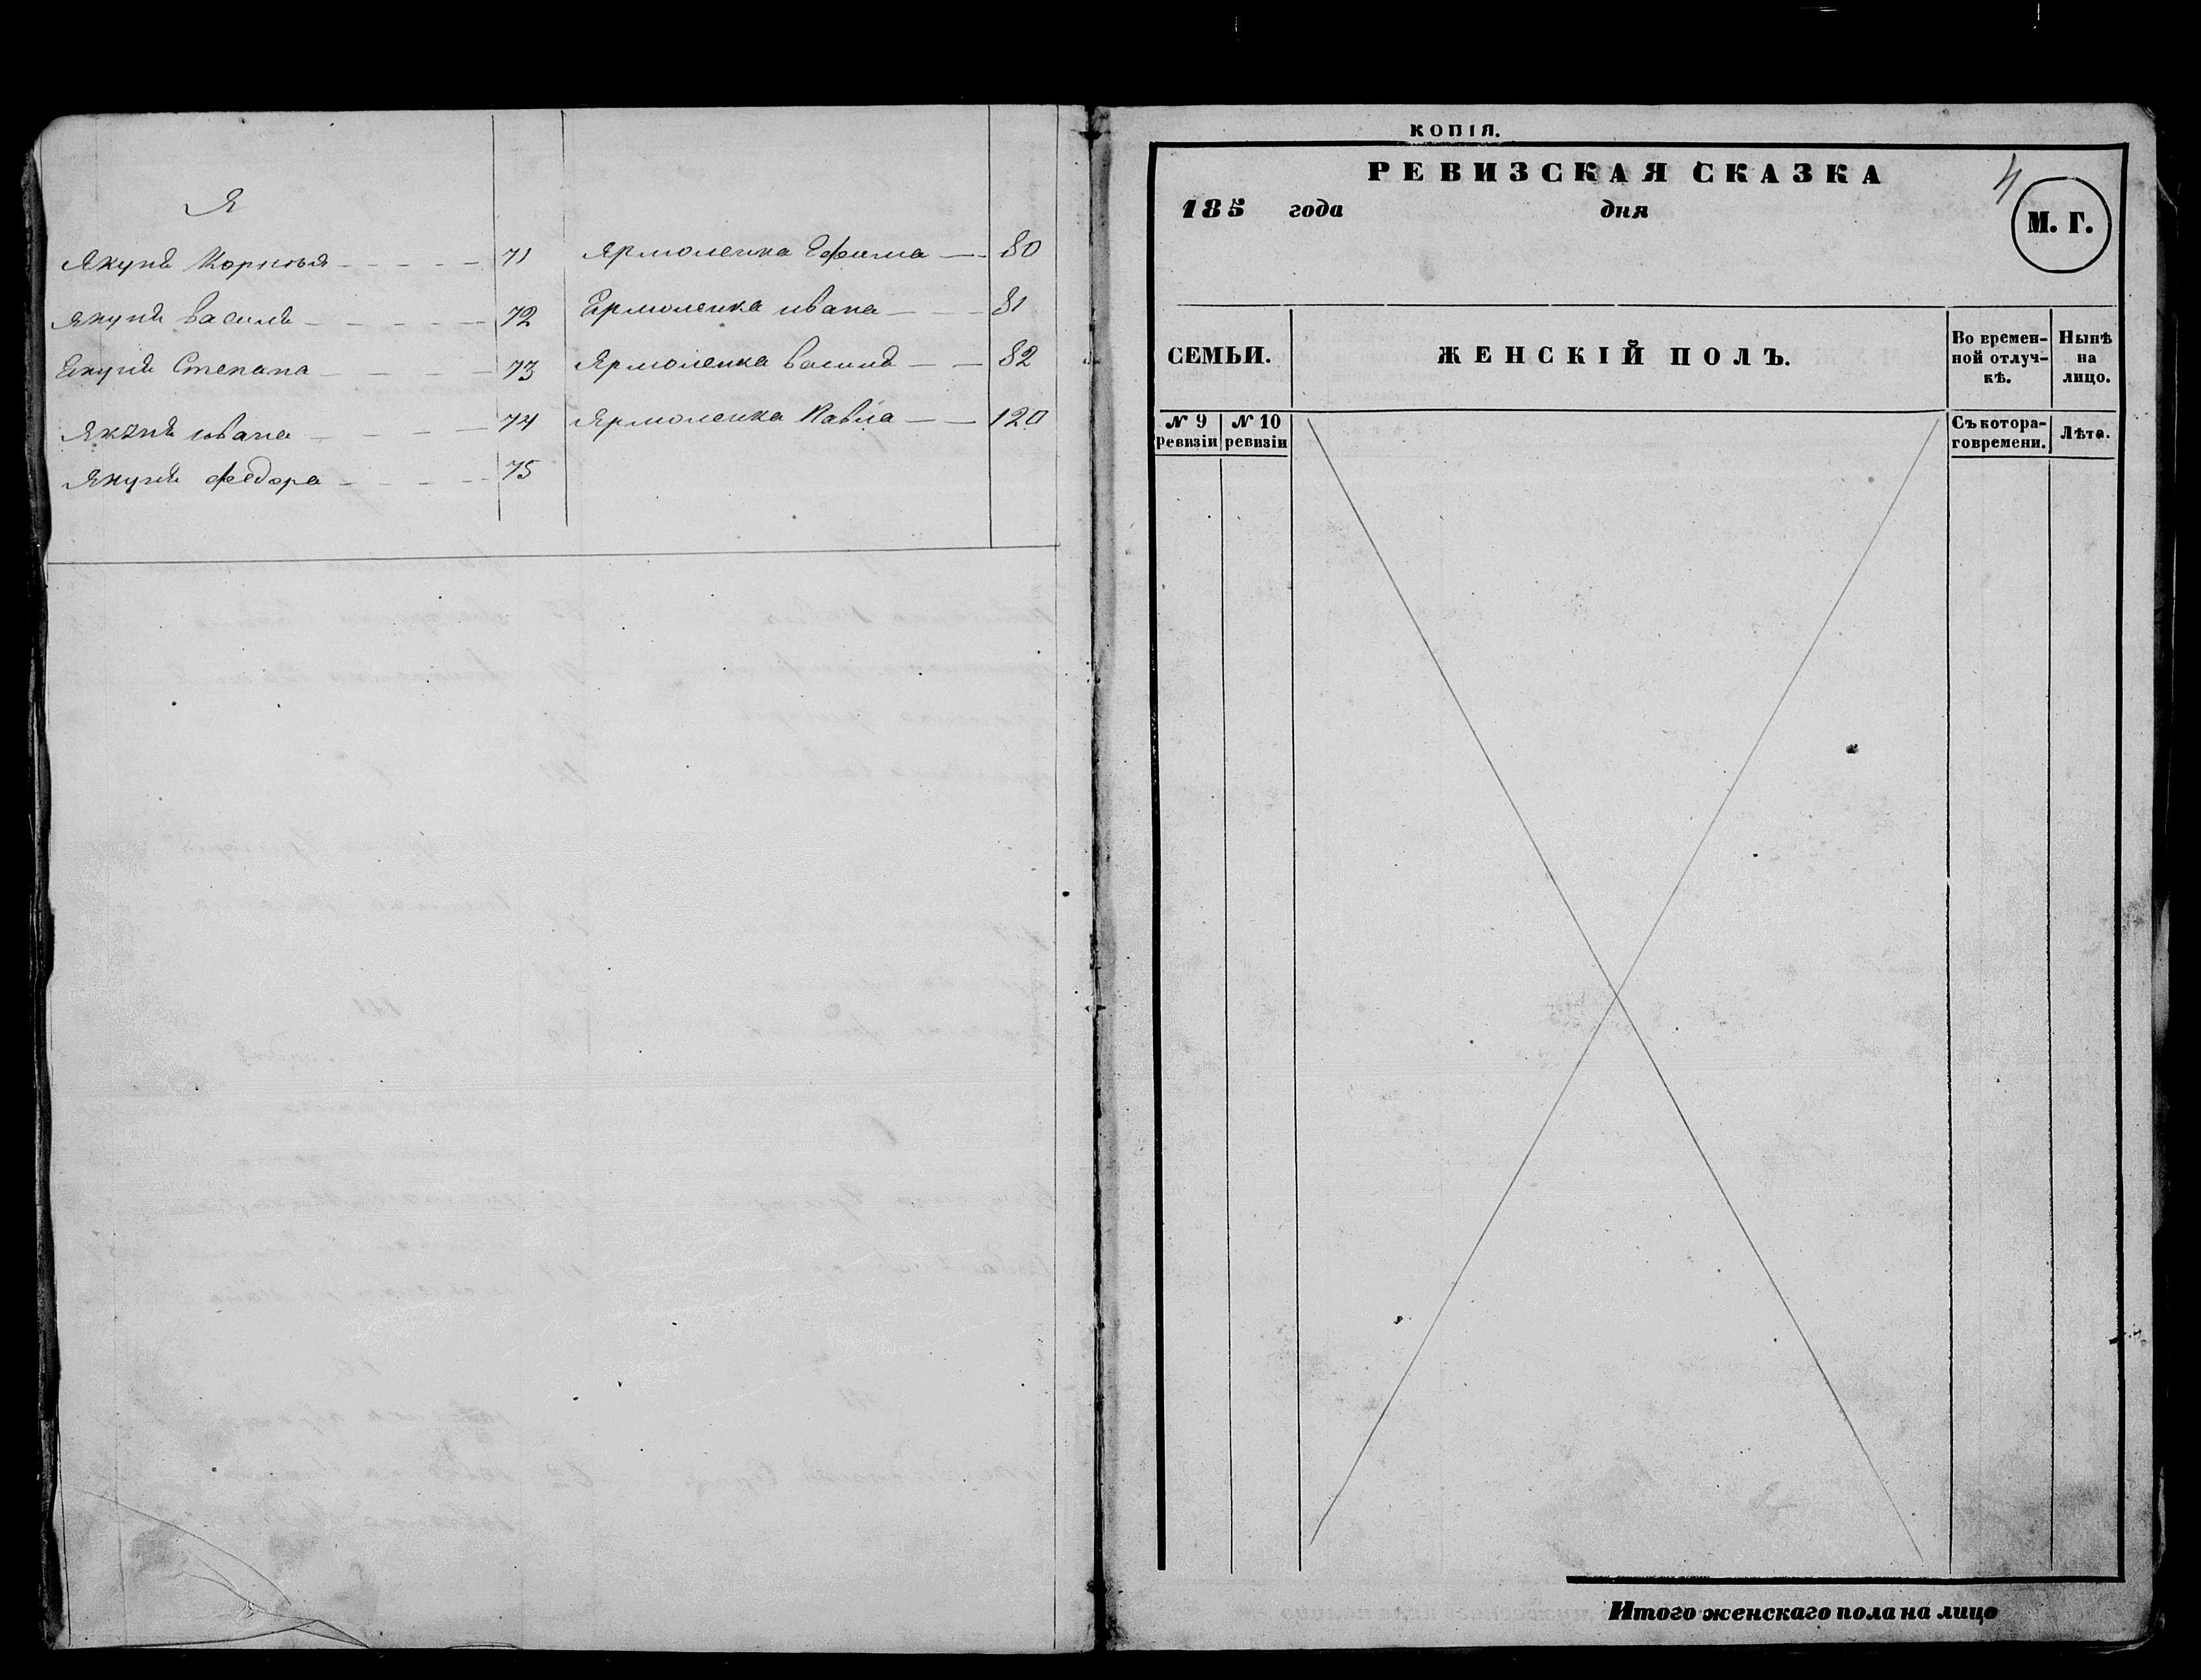 Я
Якуня Корнѣя 71
Якуня Василя 72
Екуня Степана 73
Якуня ивана 74
Якуня федора 75
Ярмоленка Ефима 80
Ермоленка ивана 81
Ярмоленка Василя 82
Ярмоленка Павла 120
КОПІЯ.
РЕВИЗСКАЯ СКАЗКА
4
185 года дня
М. Г.
СЕМЬИ.
ЖЕНСКІЙ ПОЛЪ.
Во времен-
ной отлуч-
кѣ.
Нынѣ
на
лицо.
№ 9
ревизіи
№ 10
ревизіи
Съ котора-
го времени.
Лѣта.
Итого женскаго пола на лицо